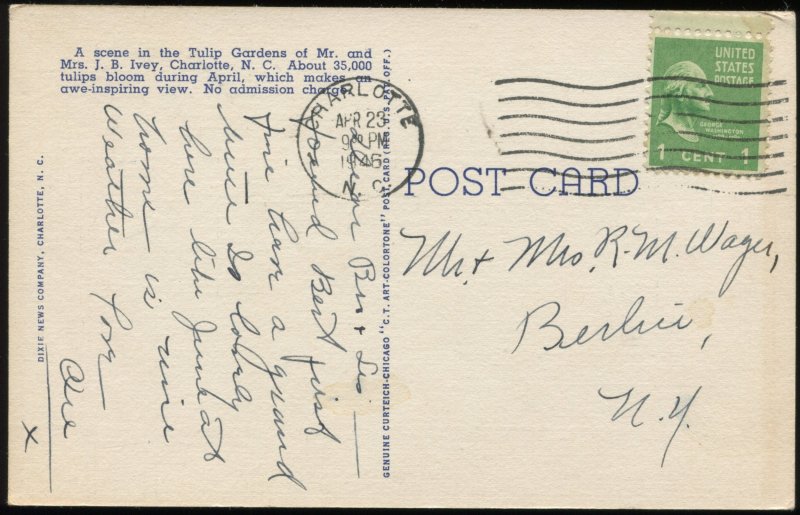 A scene in the Tulip Gardens of Mr. and
Mrs. J. B. Ivey, Charlotte, N. C. About 35,000
tulips bloom during April, which makes an
awe-inspiring view. No admission charge.
CHARLOTTE
APR 23
9 PM
1946
N. C.
UNITED
STATES
POSTAGE
GEORGE
WASHINGTON
1 CENT 1
POST CARD
Bro + Sis —
Found Bert just
fine a grand
time so lovely
here like June at
home nice
Weather Love
Mr. + Mrs. R. M. Wager,
Berlin,
N.Y.
X
DIXIE NEWS COMPANY, CHARLOTTE, N. C.
GENUINE CURTEICH-CHICAGO "C.T. ART-COLORTONE" POST CARD (REG. U.S. PAT. OFF.)